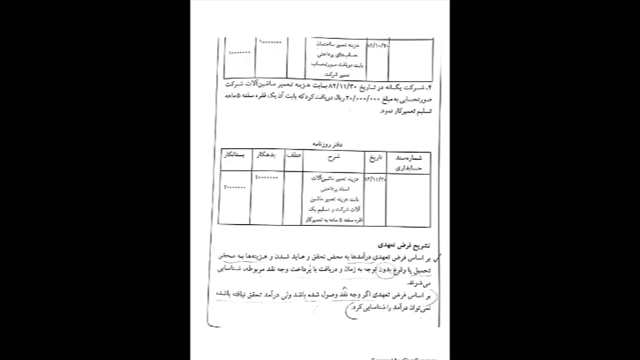 ۸۴/۱۰/۲۰ هزینه تعمیر ساختمان ۱۰۰۰۰۰۰
حساب‌های پرداختی ۱۰۰۰۰۰۰
بابت دریافت صورتحساب
تعمیر شرکت
۴. شرکت یگانه در تاریخ ۸۴/۱۱/۳۰ بابت هزینه تعمیر ماشین‌آلات شرکت
صورتحسابی به مبلغ ۲۰/۰۰۰/۰۰۰ ریال دریافت کرد که بابت آن یک فقره سفته ۵ ماهه
تسلیم تعمیرکار نمود.
دفتر روزنامه
شماره سند حسابداری تاریخ شرح عطف بدهکار بستانکار
۸۴/۱۱/۳۰ هزینه تعمیر ماشین‌آلات
اسناد پرداختی
بابت هزینه تعمیر ماشین
آلات شرکت و تسلیم یک
فقره سفته ۵ ماهه به تعمیرکار
تشریح فرض تعهدی
بر اساس فرض تعهدی درآمدها به محض تحقق و عاید شدن و هزینه‌ها به محض
تحمیل یا وقوع بدون توجه به زمان و دریافت یا پرداخت وجه نقد مربوطه، شناسایی
می‌شوند.
بر اساس فرض تعهدی اگر وجه نقد وصول شده باشد ولی درآمد تحقق نیافته باشد،
نمی‌توان درآمد را شناسایی کرد.